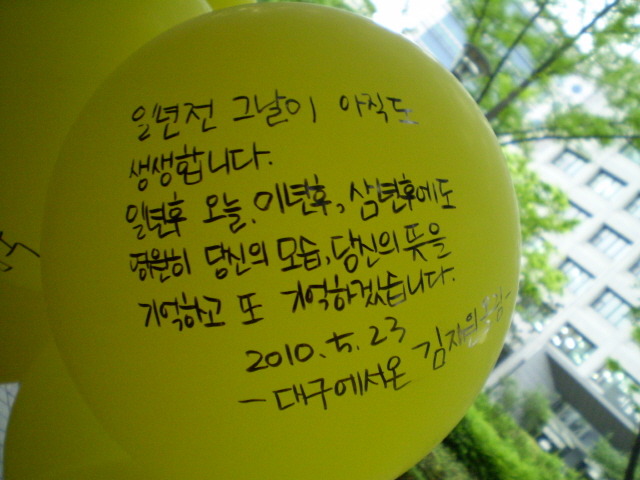 일년전 그날이 아직도
생생합니다.
일년후 오늘, 이년후, 삼년후에도
영원히 당신의 모습, 당신의 뜻을
기억하고 또 기억하겠습니다.
2010.5.23
- 대구에서온 김재원